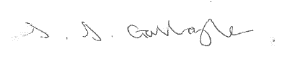 S. S. Gallagher.